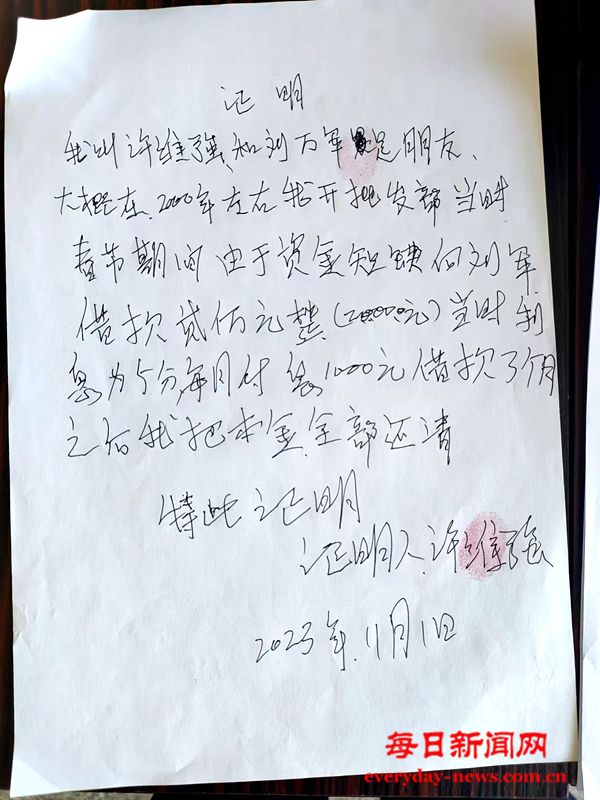 证明
我叫许维强、和刘万军是朋友、
大概在、2000年左右我开批发部当时
春节期间由于资金短缺向刘军
借款贰万元整(20000元)当时利
息为5分,每月付息1000元借款3个月
之后我把本金全部还清
特此证明
证明人、许维强
2023年、11月1日
每日新闻网
everyday-news.com.cn